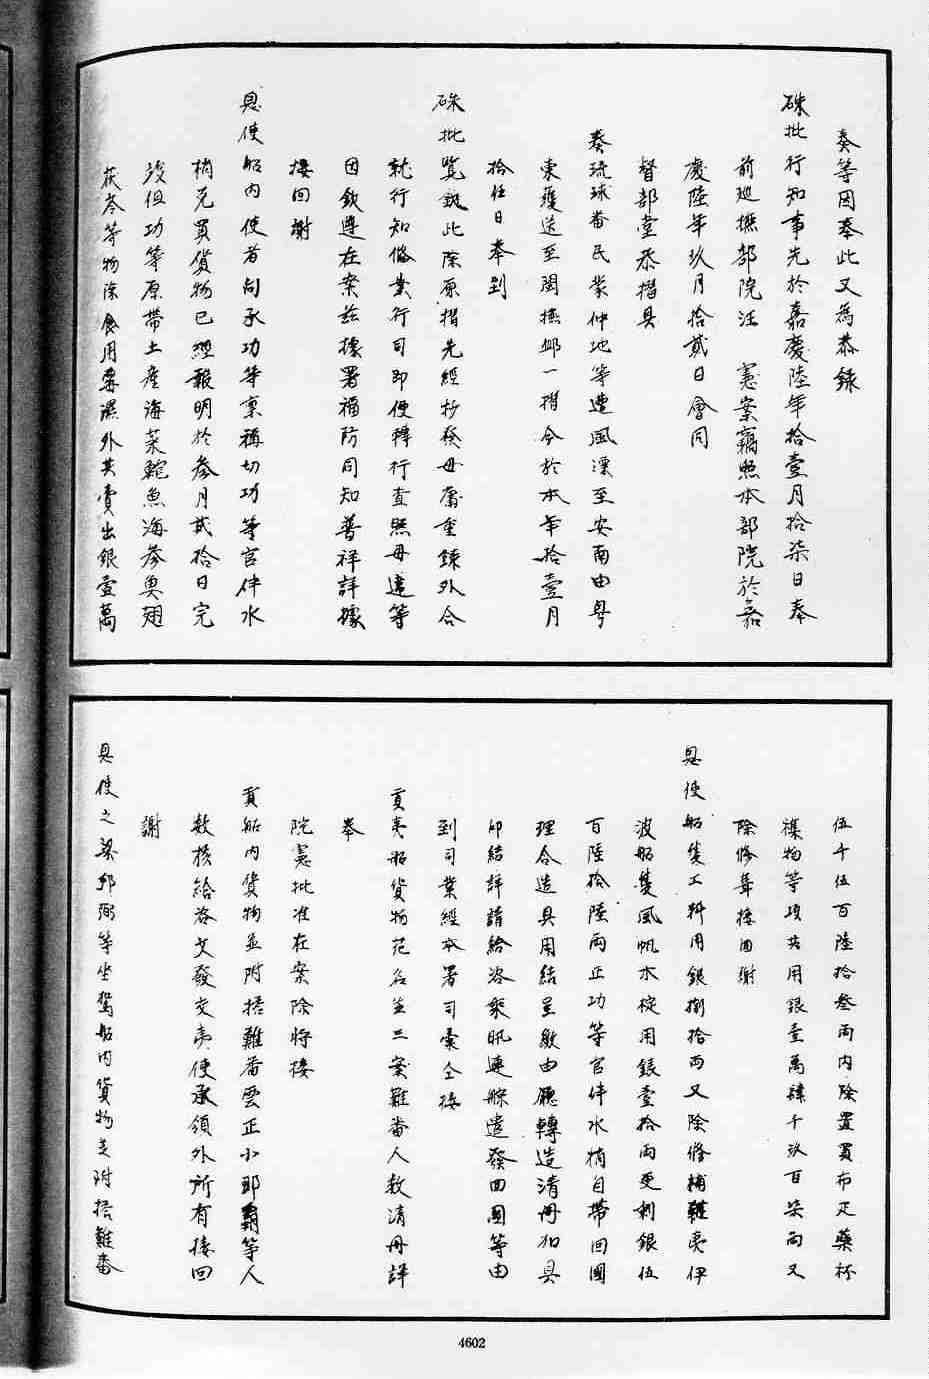 奏等因奉此又為恭錄
硃批行知事先於嘉慶陸年拾壹月拾柒日奉
前巡撫部院汪　憲案竊照本部院於嘉
慶陸年玖月拾貳日會同
督部堂恭摺具
奏琉球番民蒙仲地等遭風漂至安南由粵
東護送至閩撫卹一摺今於本年拾壹月
拾任日奉到
硃批覽欽此除原摺先經抄發毋庸重錄外合
就行知備案行司即便轉行查照毋違等
因欽遵在案茲據署福防同知普祥詳據
接回謝
恩使船內使者向承功等稟稱切功等官伴水
梢兌買貨物已經報明於參月貳拾日完
竣但功等原帶土產海菜鮑魚海參魚翅
茯苓等物除食用霉濕外共賣出銀壹萬
伍千伍百陸拾叁兩內除置買布疋藥材
襍物等項共用銀壹萬肆千玖百柒兩又
除修葺接回謝
恩使船隻工料用銀捌拾兩又除修補難夷伊
波船隻風帆木椗用銀壹拾兩更剩銀伍
百陸拾陸兩正功等官伴水梢自帶回國
理合造具用結呈繳由廳轉造清冊加具
印結詳請給咨聚帆連䑸遣發回國等由
到司業經本署司彙仝接
貢夷船貨物花名並三案難番人數清冊詳
奉
院憲批准在案除將接
貢船內貨物並附搭難番雲正小那霸等人
數填給咨文發交夷使承領外所有接回
謝
恩使之梁邦弼等坐駕船內貨物並附搭難番
4602